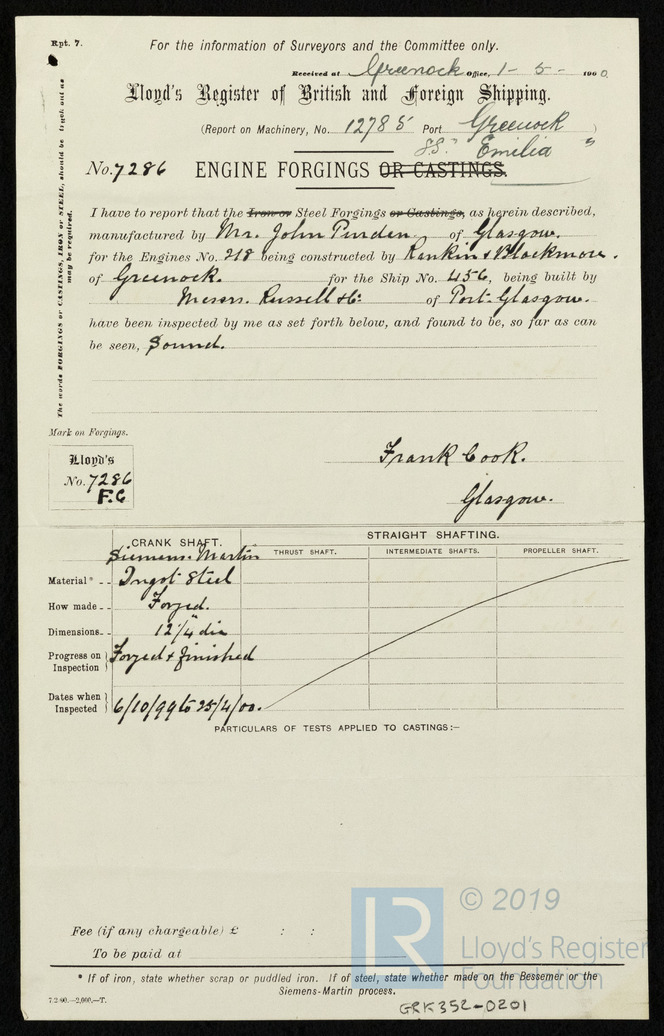 Rpt. 7.
For the information of Surveyors and the Committee only.
Received at Greenock Office, 1-5-1900.
Lloyd's Register of British and Foreign Shipping.
(Report on Machinery, No. 12785 Port Greenock)
S.S. "Emilia"
No. 7286 ENGINE FORGINGS OR CASTINGS.
The words FORGINGS or CASTINGS, IRON or STEEL, should be struck out as
may be required.
I have to report that the Iron or Steel Forgings or Castings, as herein described,
manufactured by Mr. John Purden, of Glasgow.
for the Engines No. 218 being constructed by Rankin & Blackmore.
of Greenock. for the Ship No. 456, being built by
Messrs. Russell & Co. of Port-Glasgow.
have been inspected by me as set forth below, and found to be, so far as can
be seen, Sound.
Mark on Forgings.
Lloyd's
No. 7286
F.C
Frank Cook.
Glasgow.
CRANK SHAFT. STRAIGHT SHAFTING.
THRUST SHAFT. INTERMEDIATE SHAFTS. PROPELLER SHAFT.
Siemens. Martin
Material* Ingot Steel
How made Forged.
Dimensions 12 1/4" dia
Progress on Inspection } Forged & finished
Dates when Inspected } 6/10/99 to 25/4/00.
PARTICULARS OF TESTS APPLIED TO CASTINGS:—
Fee (if any chargeable) £ : :
To be paid at
* If of iron, state whether scrap or puddled iron. If of steel, state whether made on the Bessemer or the
Siemens-Martin process.
7.2.90.—2,000.—T.
GRK352-0201
LR
© 2019
Lloyd's Register
Foundation